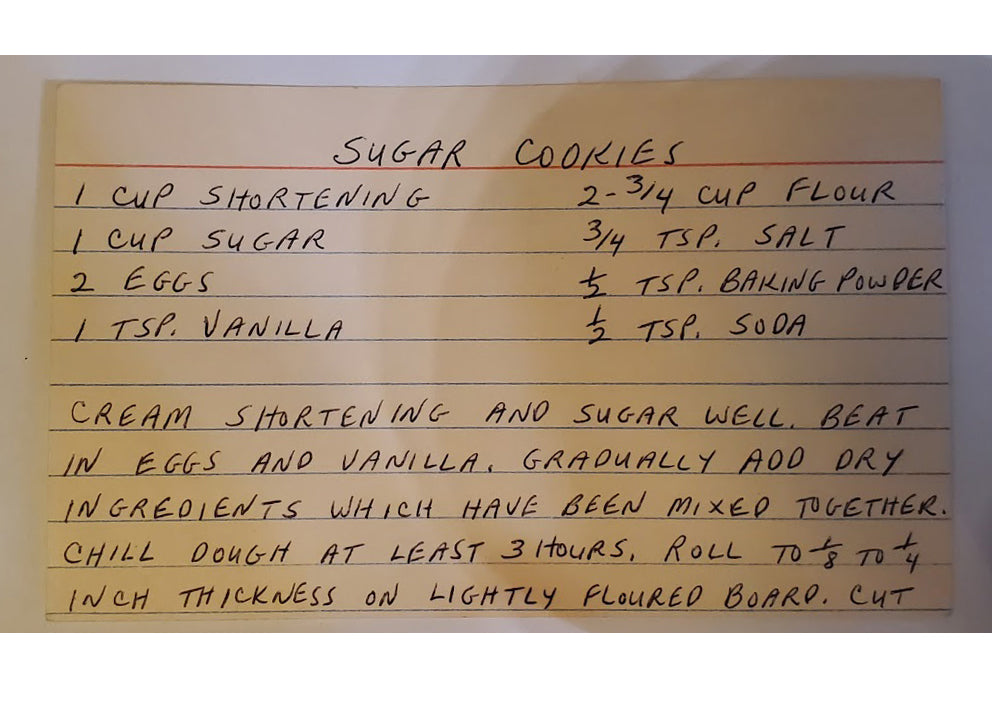 SUGAR COOKIES
1 CUP SHORTENING 2-3/4 CUP FLOUR
1 CUP SUGAR 3/4 TSP. SALT
2 EGGS 1/2 TSP. BAKING POWDER
1 TSP. VANILLA 1/2 TSP. SODA
CREAM SHORTENING AND SUGAR WELL. BEAT
IN EGGS AND VANILLA. GRADUALLY ADD DRY
INGREDIENTS WHICH HAVE BEEN MIXED TOGETHER.
CHILL DOUGH AT LEAST 3 HOURS. ROLL TO 1/8 TO 1/4
INCH THICKNESS ON LIGHTLY FLOURED BOARD. CUT